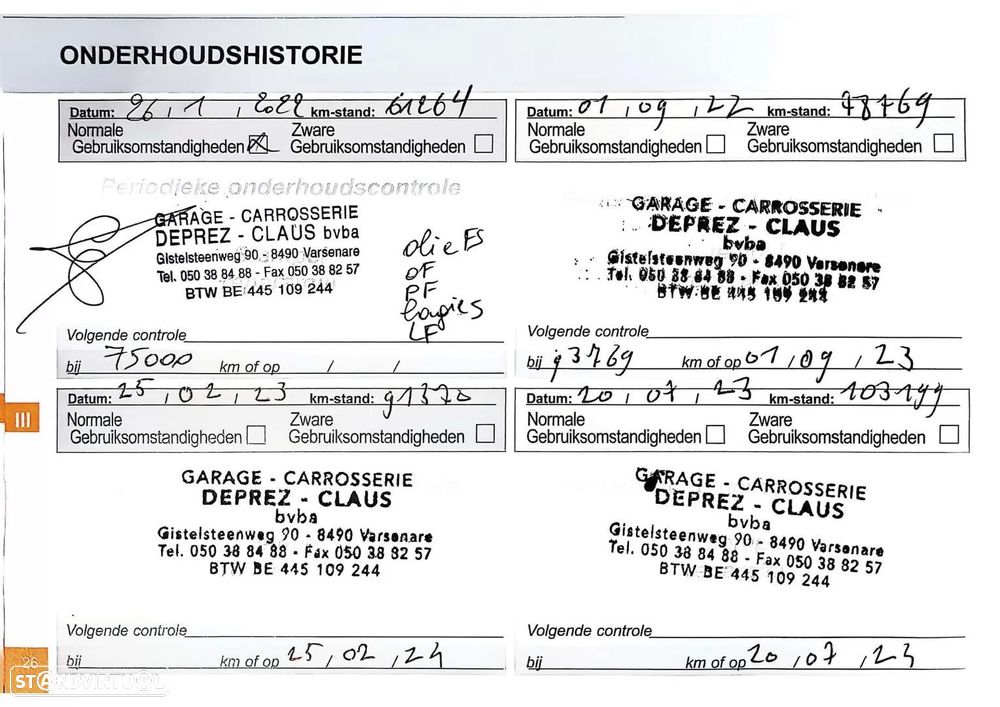 ONDERHOUDSHISTORIE
Datum: 26 / 1 / 2022 km-stand: 61264
Normale Gebruiksomstandigheden Zware Gebruiksomstandigheden
Periodieke onderhoudscontrole
GARAGE - CARROSSERIE
DEPREZ - CLAUS bvba
Gistelsteenweg 90 - 8490 Varsenare
Tel. 050 38 84 88 - Fax 050 38 82 57
BTW BE 445 109 244
olie FS
OF
PF
bougies
LF
Volgende controle
bij 75000 km of op / /
Datum: 01 / 09 / 22 km-stand: 78769
Normale Gebruiksomstandigheden Zware Gebruiksomstandigheden
GARAGE - CARROSSERIE
DEPREZ - CLAUS
bvba
Gistelsteenweg 90 - 8490 Varsenare
Tel. 050 38 84 88 - Fax 050 38 82 57
BTW BE 445 109 244
Volgende controle
bij 93769 km of op 01 / 09 / 23
Datum: 25 / 02 / 23 km-stand: 91370
Normale Gebruiksomstandigheden Zware Gebruiksomstandigheden
GARAGE - CARROSSERIE
DEPREZ - CLAUS
bvba
Gistelsteenweg 90 - 8490 Varsenare
Tel. 050 38 84 88 - Fax 050 38 82 57
BTW BE 445 109 244
Volgende controle
bij km of op 25 / 02 / 24
Datum: 20 / 07 / 23 km-stand: 103199
Normale Gebruiksomstandigheden Zware Gebruiksomstandigheden
GARAGE - CARROSSERIE
DEPREZ - CLAUS
bvba
Gistelsteenweg 90 - 8490 Varsenare
Tel. 050 38 84 88 - Fax 050 38 82 57
BTW BE 445 109 244
Volgende controle
bij km of op 20 / 07 / 24
III
26
STANDVIRTUAL